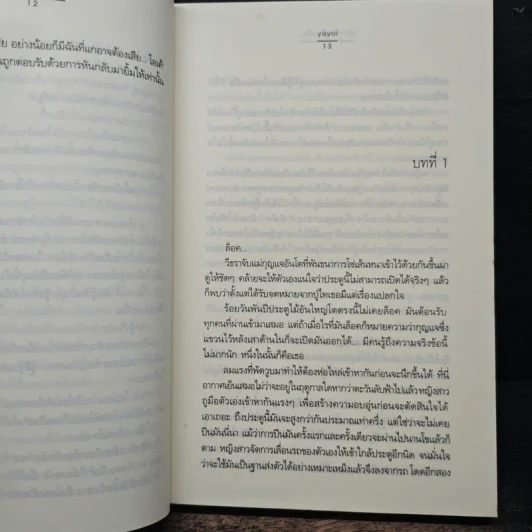 12
ย อย่างน้อยก็มีฉันที่แกอาจต้องเสีย... โอเค้
นถูกตอบรับด้วยการหันกลับมายิ้มให้เท่านั้น
yàyoi
13
บทที่ 1
ล็อค...
วีธราจับแม่กุญแจอันโตที่พันธนาการโซ่เส้นหนาเข้าไว้ด้วยกันขึ้นมา
ดูให้ชัดๆ คล้ายจะให้ตัวเองแน่ใจว่าประตูนี้ไม่สามารถเปิดได้จริงๆ แล้ว
ก็พบว่าตั้งแต่ได้รับจดหมายจากปู่ไทเธอมีแต่เรื่องแปลกใจ
ร้อยวันพันปีประตูไม้อันใหญ่โตตรงนี้ไม่เคยล็อค มันต้อนรับ
ทุกคนที่ผ่านเข้ามาเสมอ แต่ถ้าเมื่อไรที่มันล็อคก็หมายความว่ากุญแจซึ่ง
แขวนไว้หลังเสาด้านในก็จะเปิดมันออกได้... มีคนรู้ถึงความจริงข้อนี้
ไม่มากนัก หนึ่งในนั้นก็คือเธอ
ลมแรงที่พัดวูบมาทำให้ต้องห่อไหล่เข้าหากันก่อนจะนึกขึ้นได้ ที่นี่
อากาศเย็นเสมอไม่ว่าจะอยู่ในฤดูกาลใดหากว่าตะวันลับฟ้าไปแล้ว หญิงสาว
ถูมือตัวเองเข้าหากันแรงๆ เพื่อสร้างความอบอุ่นก่อนจะตัดสินใจได้
เอาเถอะ ถึงประตูนี้มันจะสูงกว่ากันประมาณเท่าครึ่ง แต่ใช่ว่าจะไม่เคย
ปีนมันนี่นา แม้ว่าการปีนมันครั้งแรกและครั้งเดียวจะผ่านไปนานโขแล้วก็
ตาม หญิงสาวจัดการเลื่อนรถของตัวเองให้เข้าใกล้ประตูอีกนิด จนมั่นใจ
ว่าจะใช้มันเป็นฐานส่งตัวได้อย่างเหมาะเหม็งแล้วจึงลงจากรถ โดดอีกสอง